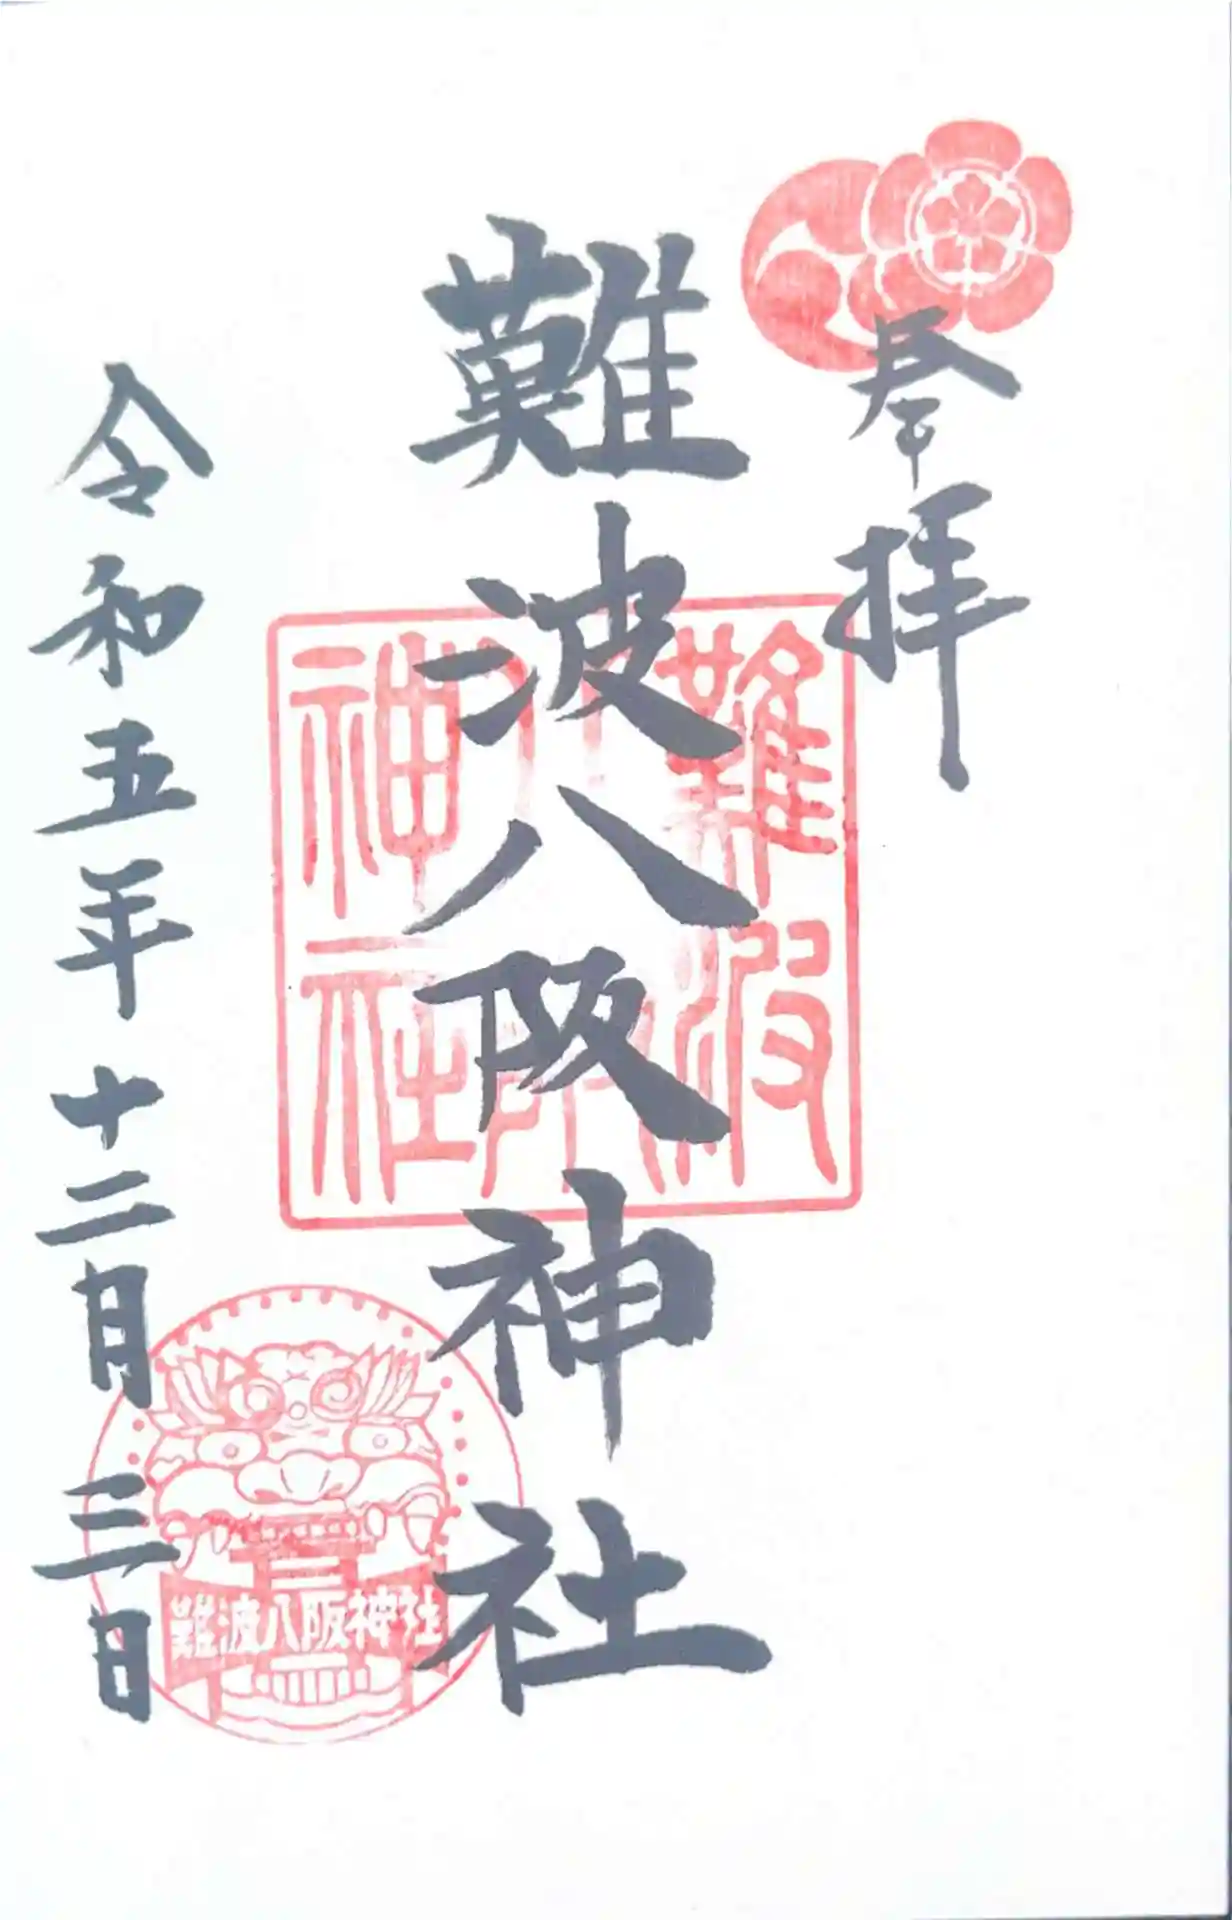 奉拝
難波八阪神社
令和五年十二月三日
難波八阪神社
難波八阪神社